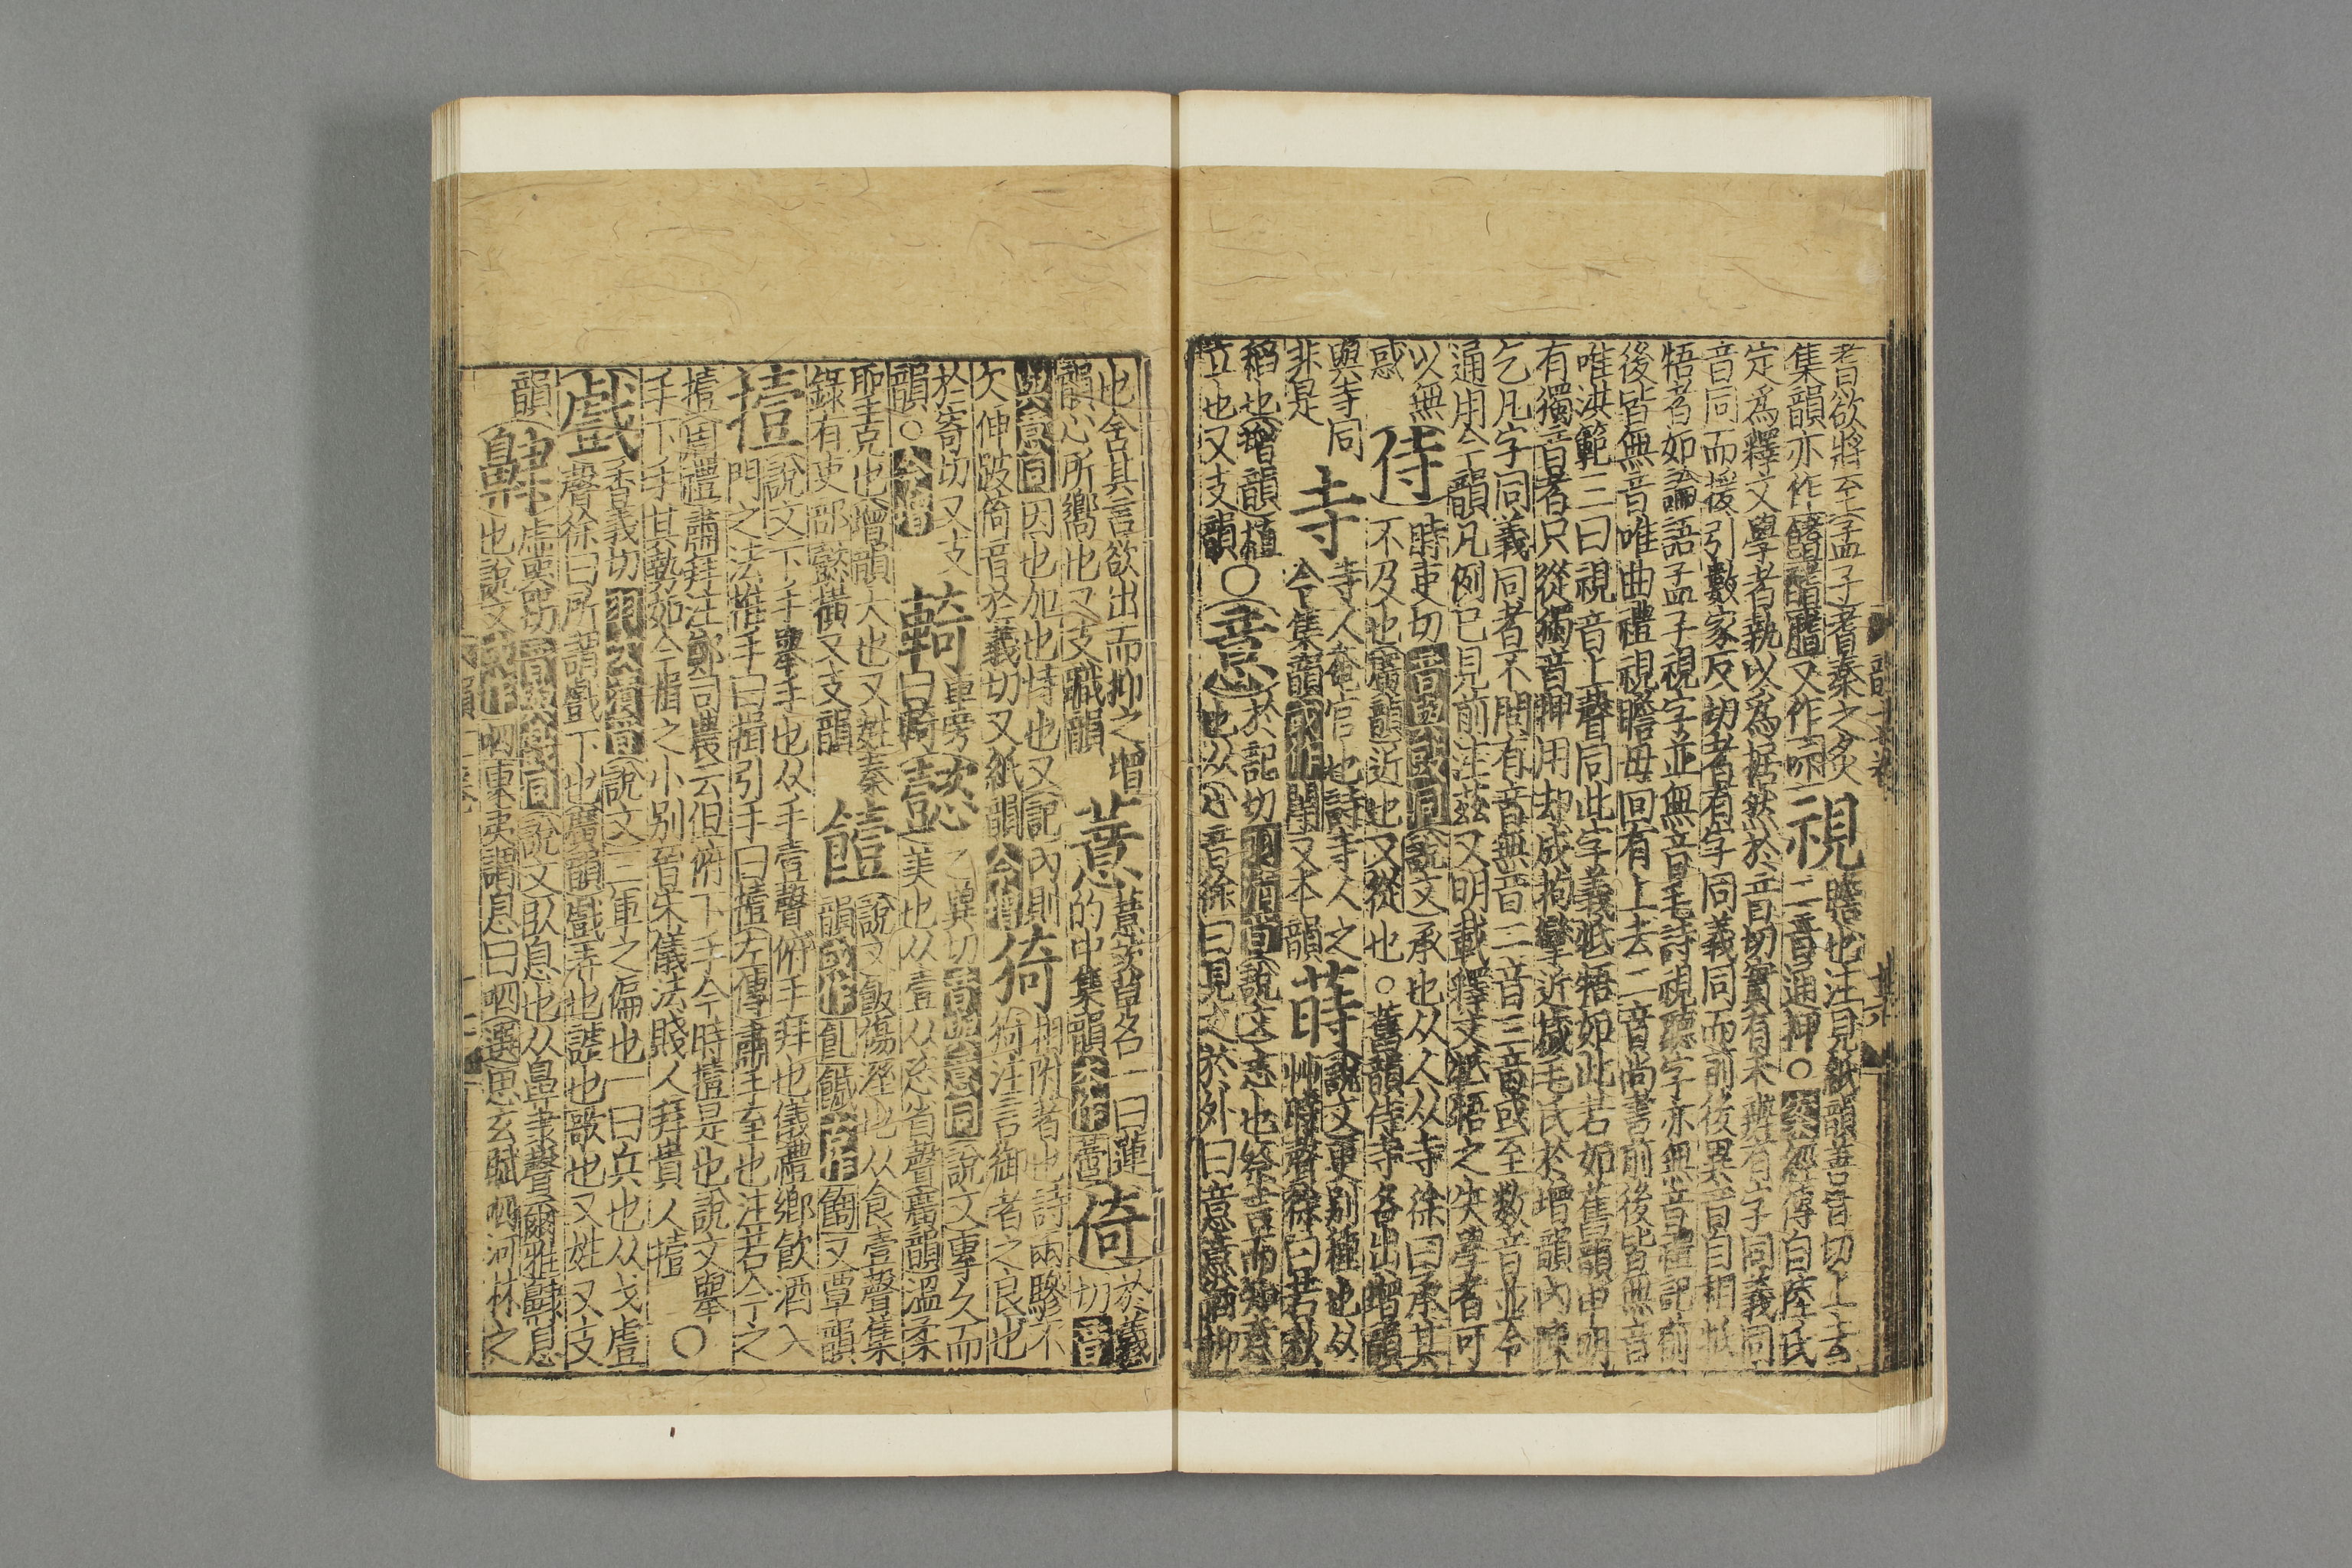 者欲將至孟子耆秦之炙視瞻也注見紙韻善旨切上去
集韻亦作又作二音通押○經傳自陸氏
定爲釋文學者執以爲據然於音切實有未辨有字同義同
音同而援引數家反切者有字同義同而前後異音自相牴
牾者如論語孟子視字並無音毛詩視聽字亦無音禮記前
後皆無音唯曲禮視瞻毋回有上去二音尚書前後皆無音
唯洪範三曰視音上聲同此字義牴牾如此若如舊韻申明
有獨音者只從獨音押用却成拘攣近歲毛氏於增韻內陳
乞凡字同義同者不問有音無音二音三音或至數音並令
通用今韻凡例已見前注茲又明載釋文牴牾之失學者可
以無
惑
侍時吏切說文承也从人从寺徐曰承其
不及也廣韻近也又從也○舊韻侍寺各出增韻
與寺同
非是
寺寺人奄官也詩寺人之
令集韻或作閽又本韻
蒔說文更別種也从
艸時聲徐曰若秧
稻也增韻植
立也又支韻
○意於記切說文志也察言而知意
也从心音徐曰見之於外曰意
也含其言欲出而抑之增
韻心所嚮也又支職韻
薏薏苡草名一曰蓮
的中集韻亦作
倚於義
切音
與意同因也加也恃也又記內則
欠伸跛倚音於義切又紙韻今增
於寄切又支
韻○今增
輢車旁
曰輢
懿乙異切音與意同說文專久而
美也从壹从恣省聲廣韻溫柔
聖克也增韻大也又姓秦
錄有吏部懿橫又支韻
饐說文飯傷溼也从食壹聲集
韻或作又覃韻
撎說文下手舉手也从手壹聲俯手拜也儀禮鄉飲酒入
門之法推手曰揖引手曰撎左傳肅手至也注若今之
撎周禮肅拜注鄭司農云但俯下手今時撎是也說文舉
手下手其勢如今揖之小別晉宋儀法賤人拜貴人撎○
戲香義切說文三軍之偏也一曰兵也从戈䖒
聲徐曰所謂戲下也廣韻戲弄也謔也歌也又姓又支
韻
虛器切說文臥息也从鼻隶聲爾雅息
也說文或作呬東夷謂息曰呬選思玄賦呬河林之